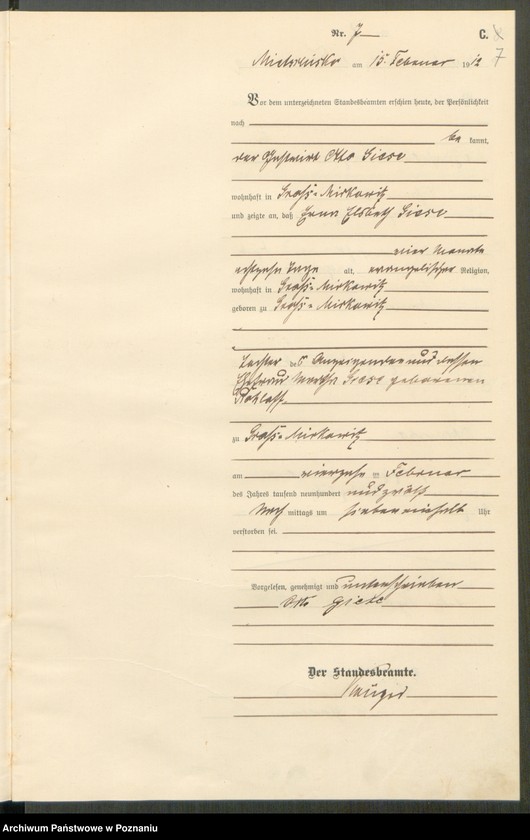 Nr. 7
C.
7
am 15. Februar 1912
Vor dem unterzeichneten Standesbeamten erschien heute, der Persönlichkeit
nach
be kannt,
der Gastwirt Otto Giese
wohnhaft in Groß-Mirkowitz
und zeigte an, daß Erna Elsbeth Giese
vier Monate
achtzehn Tage alt, evangelischer Religion,
wohnhaft in Groß-Mirkowitz
geboren zu Groß-Mirkowitz
Tochter des Anzeigenden und dessen
Ehefrau Martha Giese geborenen
zu Groß-Mirkowitz
am vierzehn ten Februar
des Jahres tausend neunhundert und zwölf
Nach mittags um sieben einhalb Uhr
verstorben sei.
Vorgelesen, genehmigt und unterschrieben
Otto Giese
Der Standesbeamte.
Archiwum Państwowe w Poznaniu